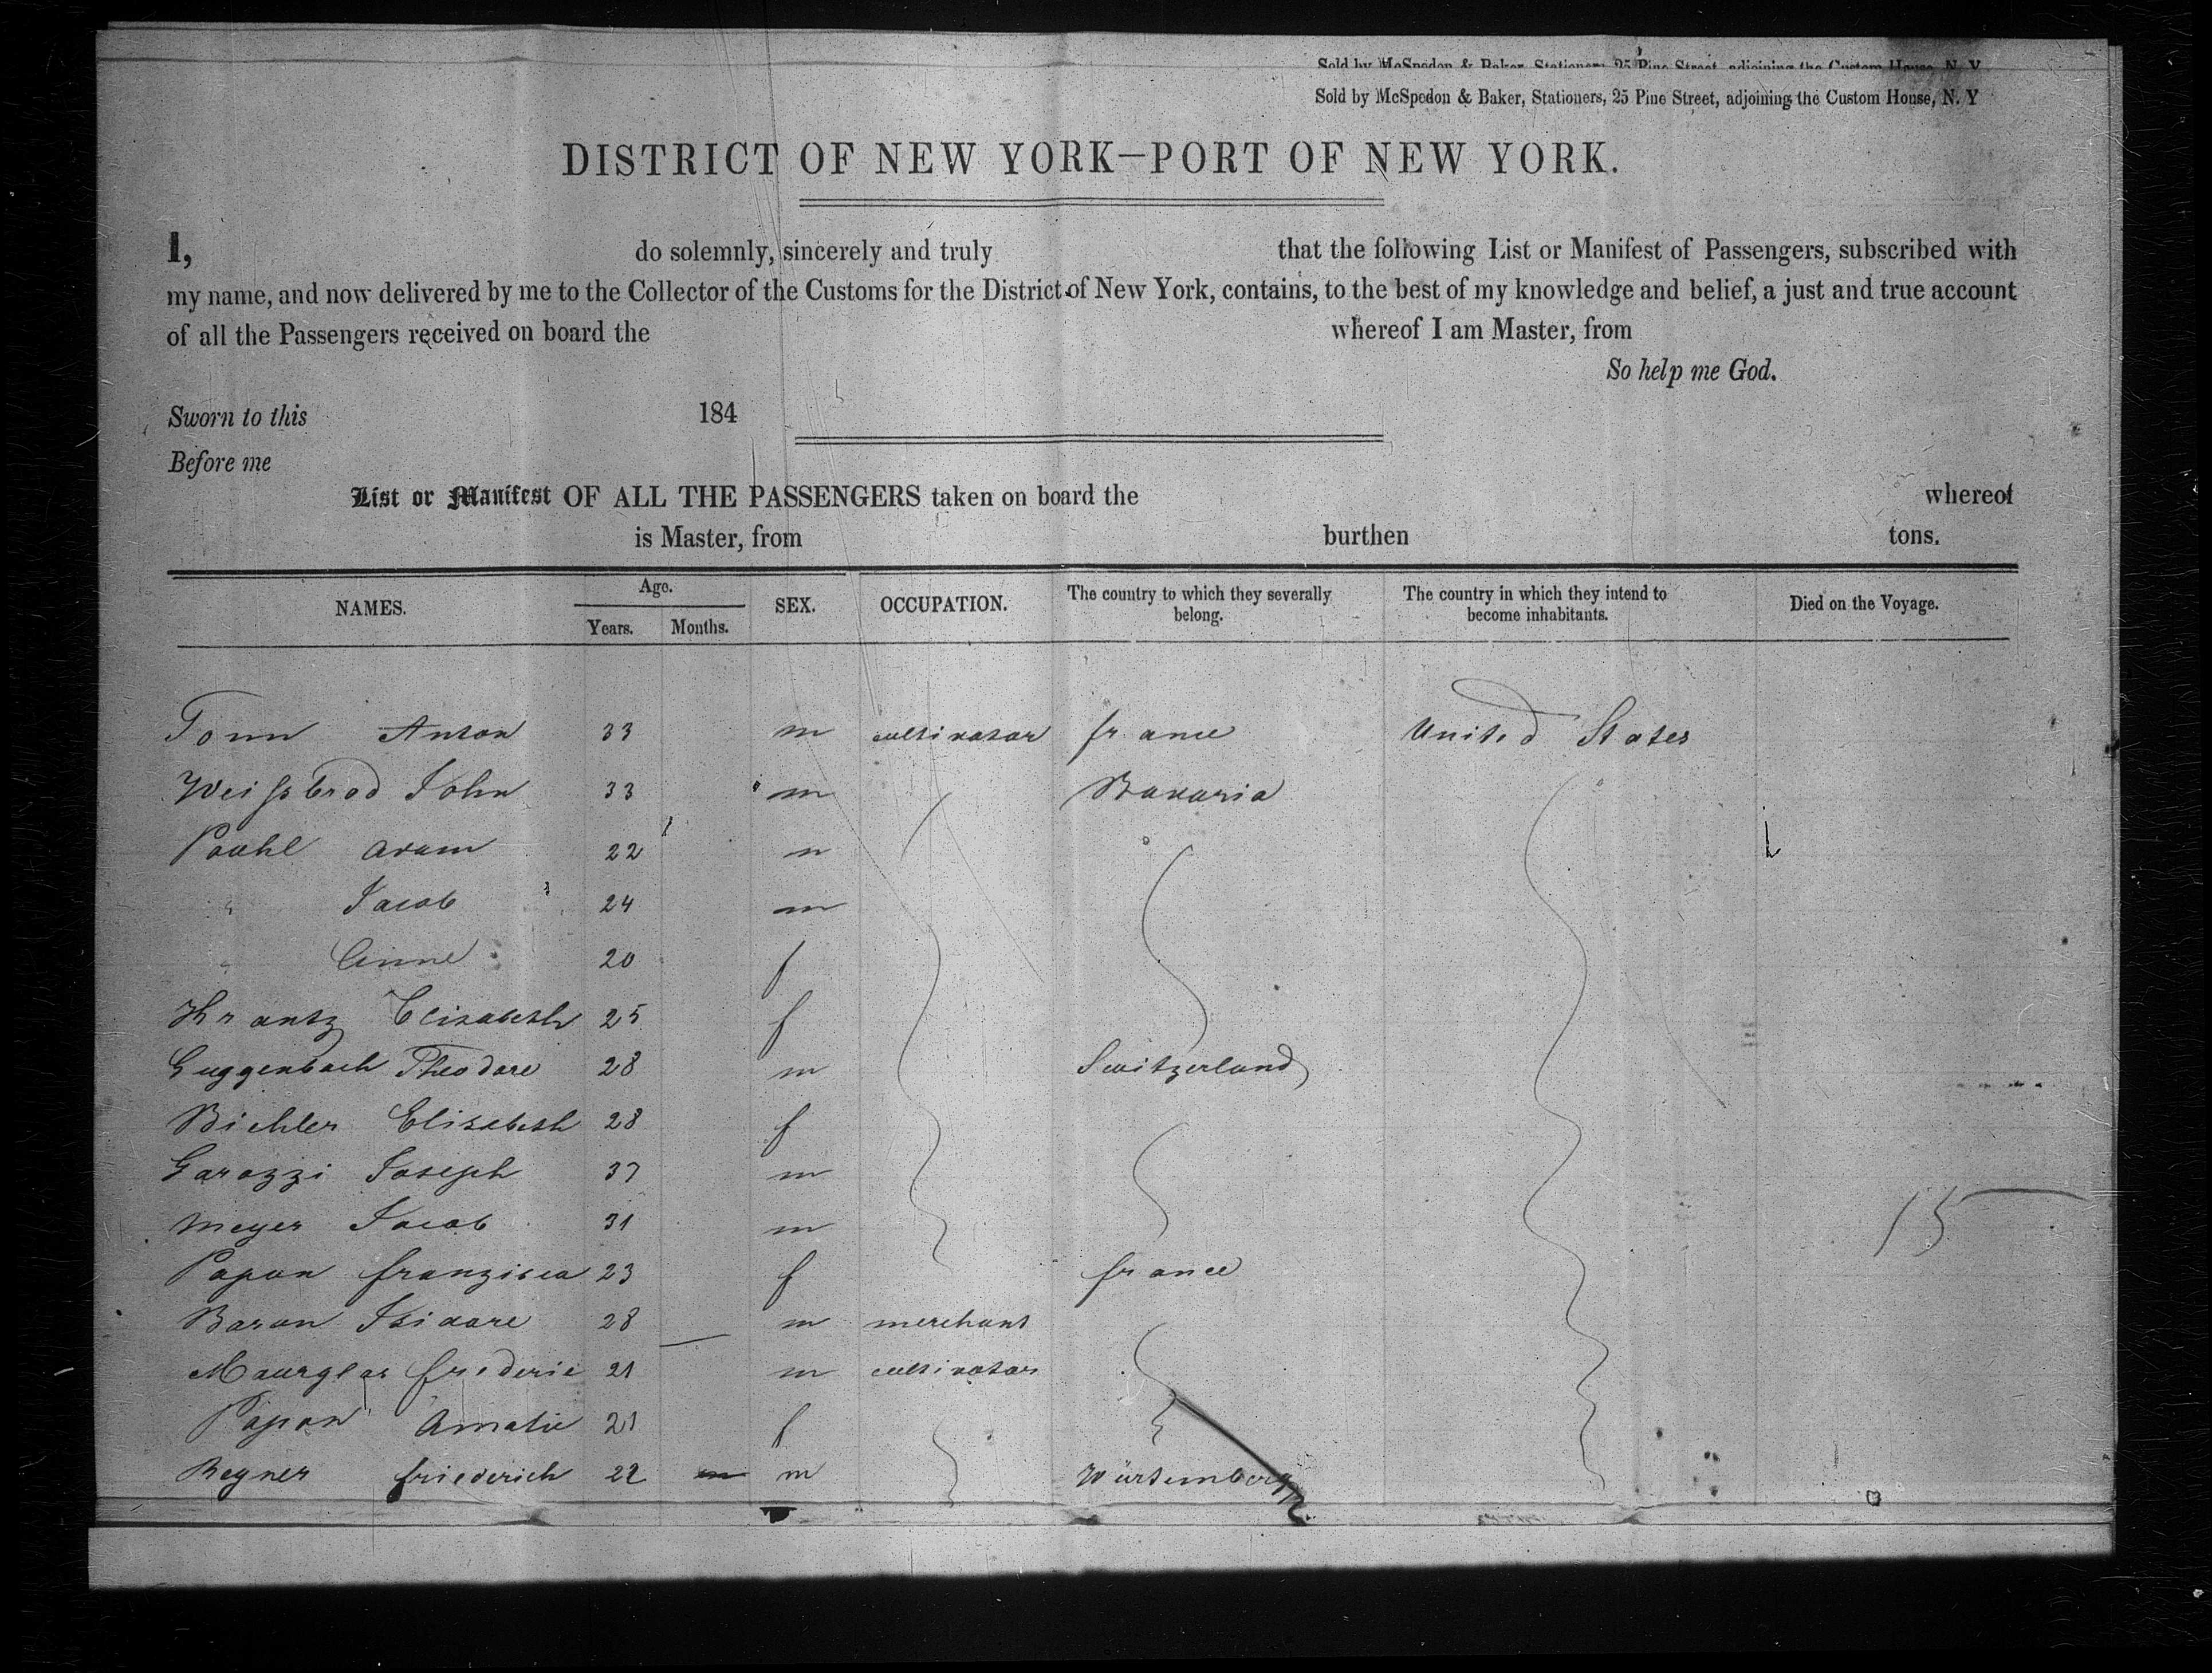 Sold by McSpedon & Baker, Stationers, 25 Pine Street, adjoining the Custom House, N. Y
Sold by McSpedon & Baker, Stationers, 25 Pine Street, adjoining the Custom House, N. Y
DISTRICT OF NEW YORK—PORT OF NEW YORK.
I, do solemnly, sincerely and truly that the following List or Manifest of Passengers, subscribed with
my name, and now delivered by me to the Collector of the Customs for the District of New York, contains, to the best of my knowledge and belief, a just and true account
of all the Passengers received on board the whereof I am Master, from
So help me God.
Sworn to this 184
Before me
List or Manifest OF ALL THE PASSENGERS taken on board the whereof
is Master, from burthen tons.
NAMES. Age. Years. Months. SEX. OCCUPATION. The country to which they severally belong. The country in which they intend to become inhabitants. Died on the Voyage.
Tonn Anton 33 m cultivator france United States
Weissbrod John 33 m Bavaria
Pauhl Adam 22 m
" Jacob 24 m
" Anne 20 f
Krantz Elisabeth 25 f
Guggenbach Theodore 28 m Switzerland
Bichler Elisabeth 28 f
Garazzi Joseph 37 m
Meyer Jacob 31 m
15
Papon franzisca 23 f france
Baron Isidore 28 m merchant
frederic 21 m cultivator
Papon Amalie 21 f
Regner friederich 22 m Würtemberg